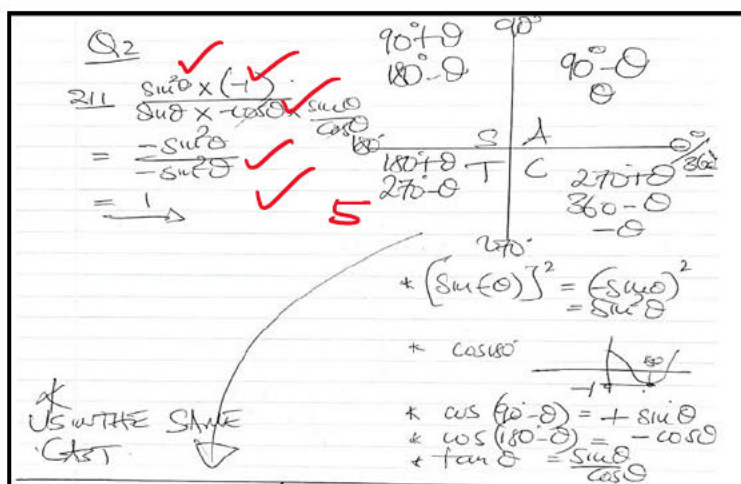 Q2
211 sin²θ × (-1)
sinθ × -cosθ × sinθ/cosθ
= -sin²θ
-sin²θ
= 1
5
90°
90°+θ
180°-θ
90°-θ
θ
180°
S A
0°
360°
T C
180°+θ
270°-θ
270°+θ
360-θ
-θ
270°
* [sin(-θ)]² = (-sinθ)²
= sin²θ
* cos180°
180°
-1
* cos(90°-θ) = + sinθ
* cos(180°-θ) = - cosθ
* tan θ = sinθ/cosθ
* THE SAME
CAST.